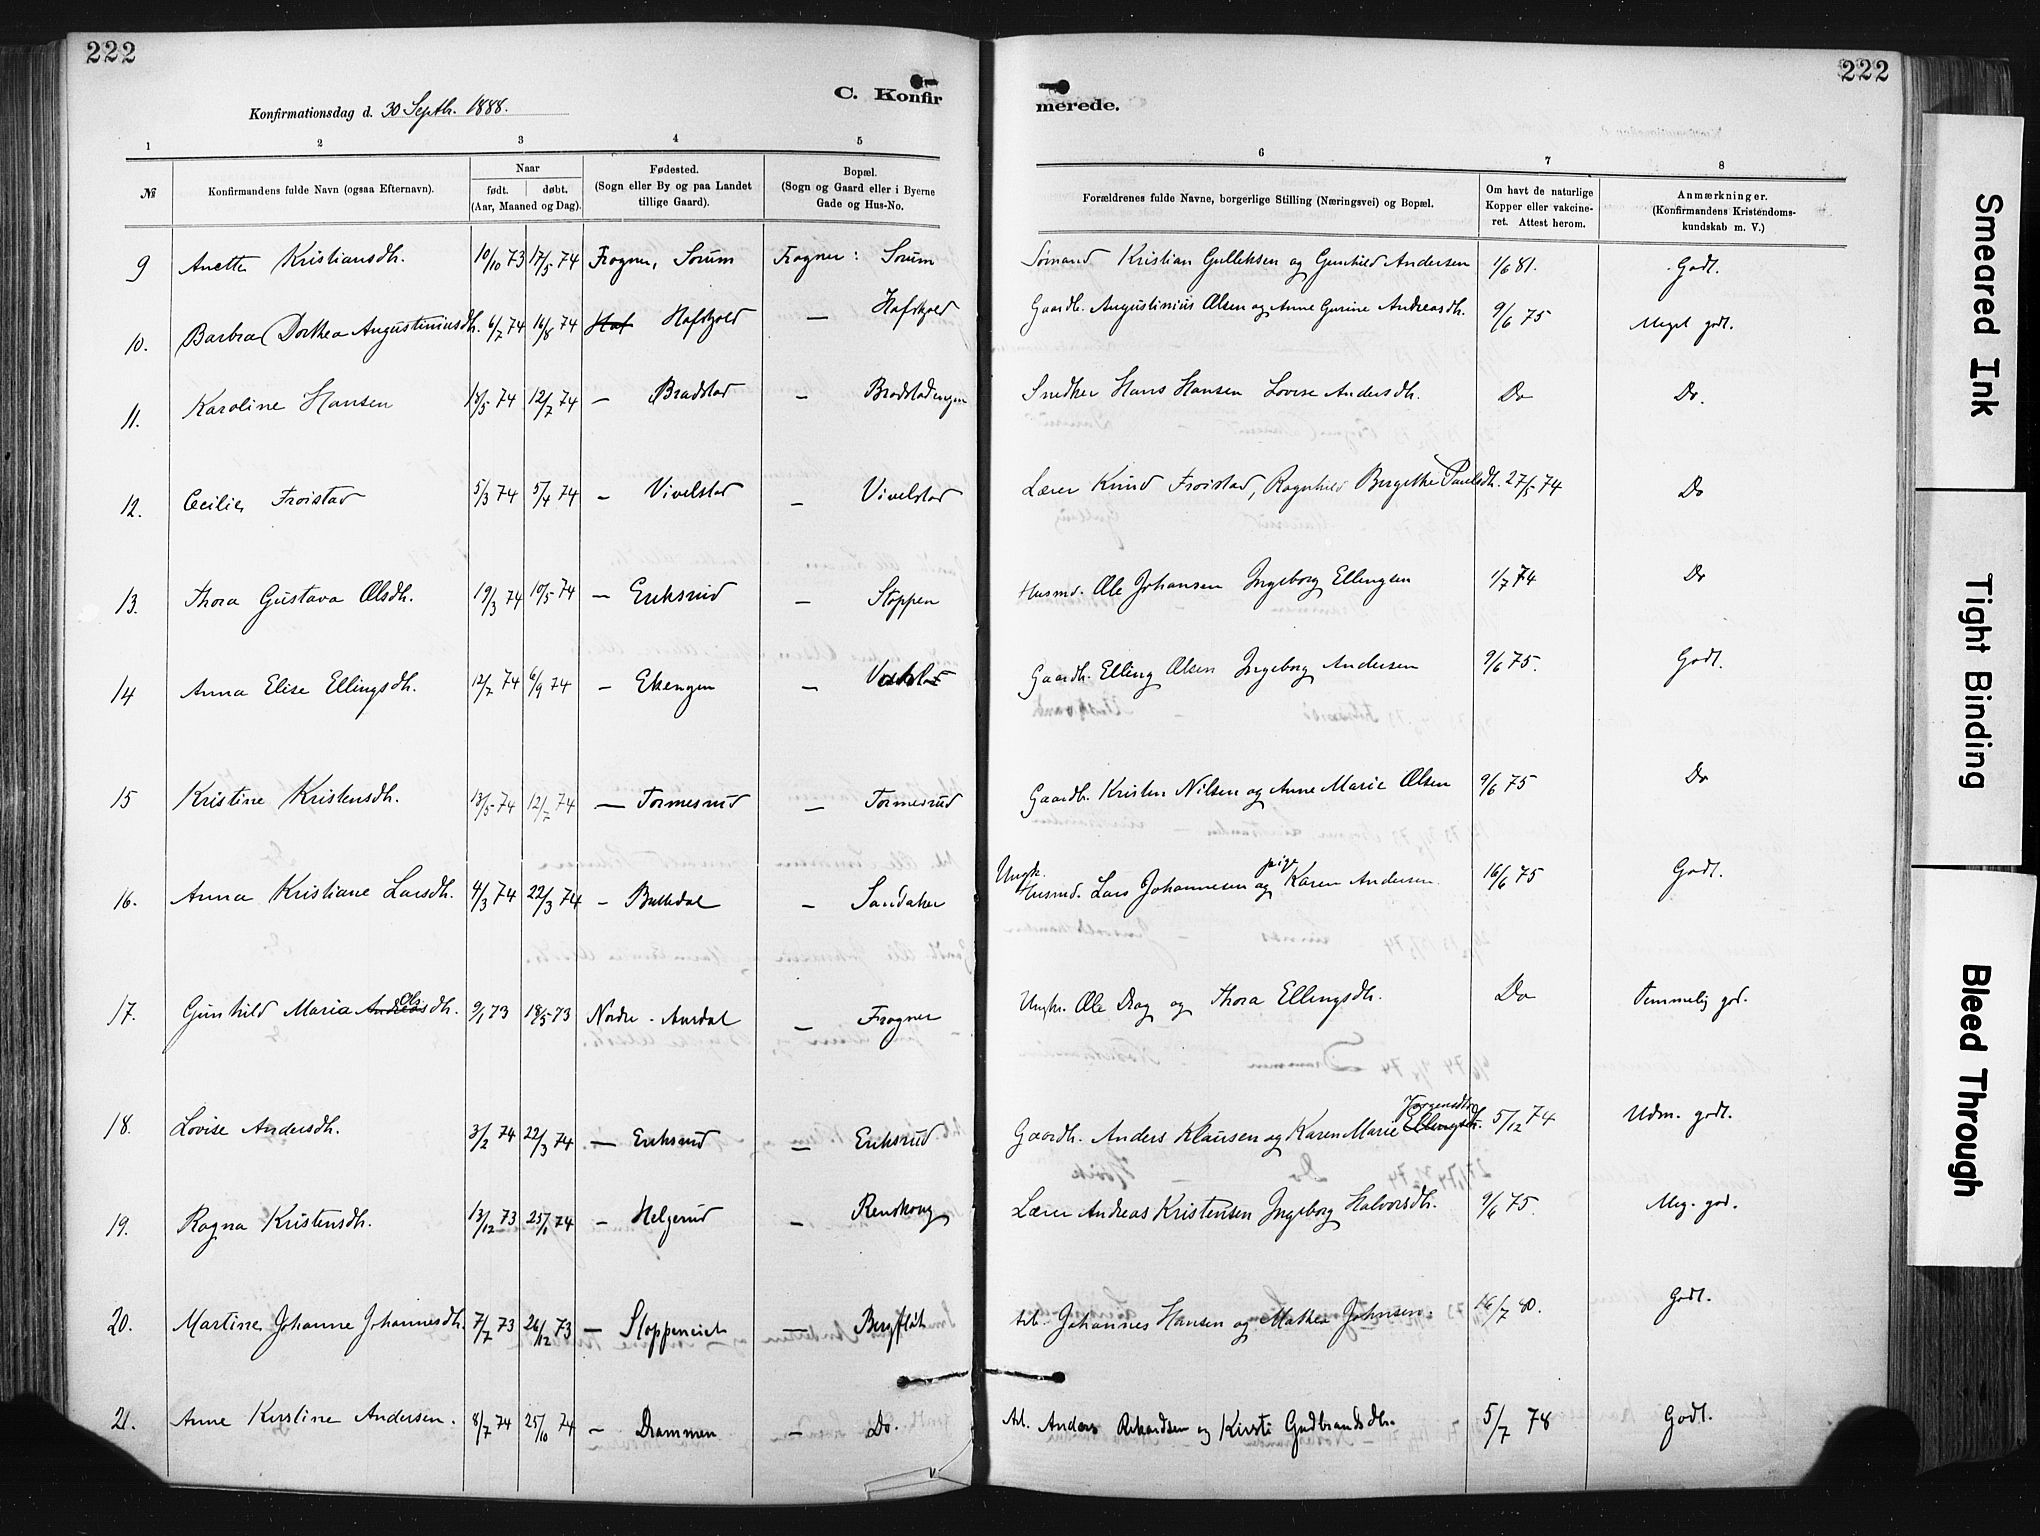 222
222
C. Konfir
merede.
Konfirmationsdag d. 30 Septb. 1888.
1 2 3 4 5 6 7 8
№ Konfirmandens fulde Navn (ogsaa Efternavn). Naar født. døbt. (Aar, Maaned og Dag). Fødested. (Sogn eller By og paa Landet tillige Gaard). Bopæl. (Sogn og Gaard eller i Byerne Gade og Hus-No. Forældrenes fulde Navne, borgerlige Stilling (Næringsvei) og Bopæl. Om havt de naturlige Kopper eller vakcineret. Attest herom. Anmærkninger. (Konfirmandens Kristendomskundskab m. V.)
9 Anette Kristiansdh. 10/10 73 17/5 74 Frogner, Sorum Frogner: Sorum Sømand Kristian Gulleksen og Gunhild Andersen 1/6 81. Godt.
10. Barbra Dorthea Augustiniusdh. 6/7 74 16/8 74 Haf Hafskjold — Hafskjold Gaardb. Augustinius Olsen og Anne Gurine Andreasdh. 9/6 75 Meget godt.
11. Karoline Hansen 18/5 74 12/7 74 — Bradstad — Bradstadengen Snedker Hans Hansen Lovise Andersdh. Do Do.
12. Cecilie Froistad 5/3 74 5/4 74 — Vivelstad — Vivelstad Lærer Knud Froistad, Ragnhild Bergithe Paulsdh. 27/5 74 Do
13. Thora Gustava Olsdh. 19/3 74 10/5 74 — Eriksrud — Stoppen Husmd. Ole Johansen Ingeborg Ellingsen 1/7 74 Do
14 Anna Elise Ellingsdh. 12/7 74 6/9 74 — Ekengen — Gaardb. Elling Olsen Ingeborg Andersen 9/6 75. Godt.
15 Kristine Kristensdh. 13/5 74 12/7 74 — Tormesrud — Tormesrud Gaardb. Kristen Nilsen og Anne Marie Olsen 9/6 75 Do
16. Anna Kristiane Larsdh. 4/3 74 22/3 74 — Bulledal — Sandaker Ungk. Husmd. Lars Johannesen og pige Karen Andersen. 16/6 75 Godt.
17. Gunhild Maria Andreas Olsdh. 9/1 73 18/5 73 Nordre-Aurdal — Frogner Ungkr. Ole Drag og Thora Ellingsdh. Do Temmelig god.
18. Lovise Andersdh. 3/2 74 22/3 74 — Eriksrud — Eriksrud Gaardb. Anders Klausen og Karen Marie Ellingsdh. Jørgensdtr 5/12 74 Udm. godt.
19. Ragna Kristensdh. 13/12 73 25/1 74 — Helgerud — Renskoug Lærer Andreas Kristensen Ingeborg Halvorsdh. 9/6 75. Meg. god.
20. Martine Johanne Johannesdh. 7/7 73 26/12 73 — Stoppeneiet — Bergflåt Arb. Johannes Hansen og Mathea Johnsen. 16/7 80. Godt.
21. Anne Kirstine Andersen. 8/7 74 25/10 74 — Drammen — Do. Arb. Anders Rikardsen og Kirsti Gudbrandsdh. 5/7 78 Godt.
Smeared Ink
Tight Binding
Bleed Through